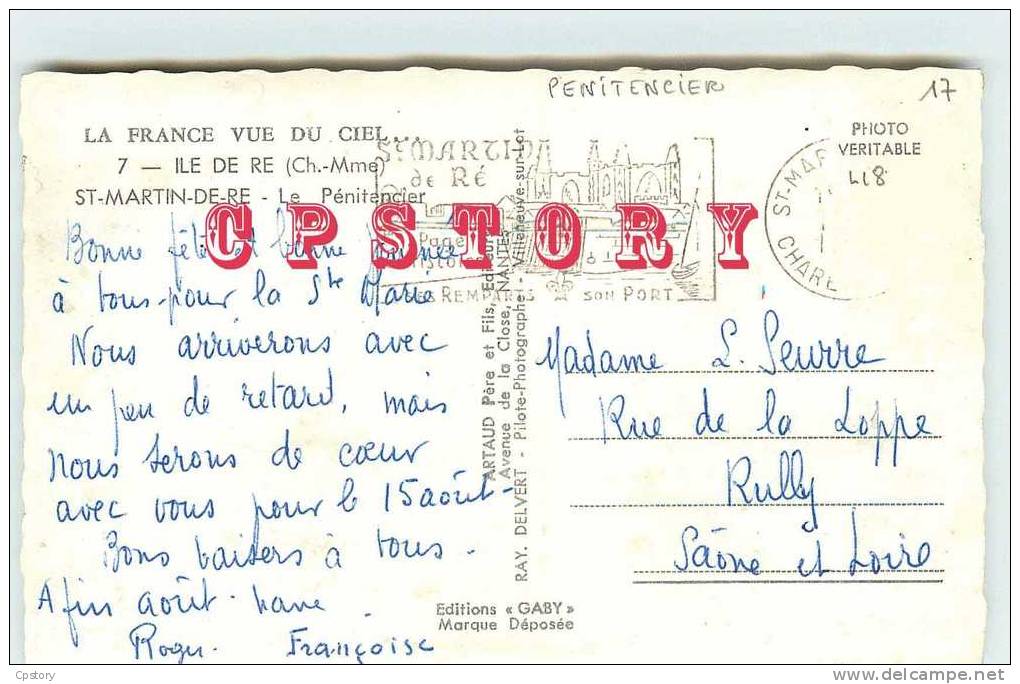 PENITENCIER
17
LA FRANCE VUE DU CIEL...
7 — ILE DE RE (Ch.-Mme)
ST-MARTIN-DE-RE - Le Pénitencier
PHOTO
VERITABLE
418
St MARTIN
de Ré
SES REMPARTS SON PORT
ST-MAR
CHARE
CPSTORY
Bonne fête et bonne journée
à tous pour la Ste Marie
Nous arriverons avec
un peu de retard, mais
nous serons de cœur
avec vous pour le 15 août -
Bons baisers à tous.
A fin août.
Roger. Françoise
ARTAUD Père et Fils, Editeurs
Avenue de la Close, NANTES
RAY. DELVERT - Pilote-Photographe - Villeneuve-sur-Lot
Madame L. Seurre
Rue de la Loppe
Rully
Saône et Loire
Editions « GABY »
Marque Déposée
Cpstory
delcampe.net